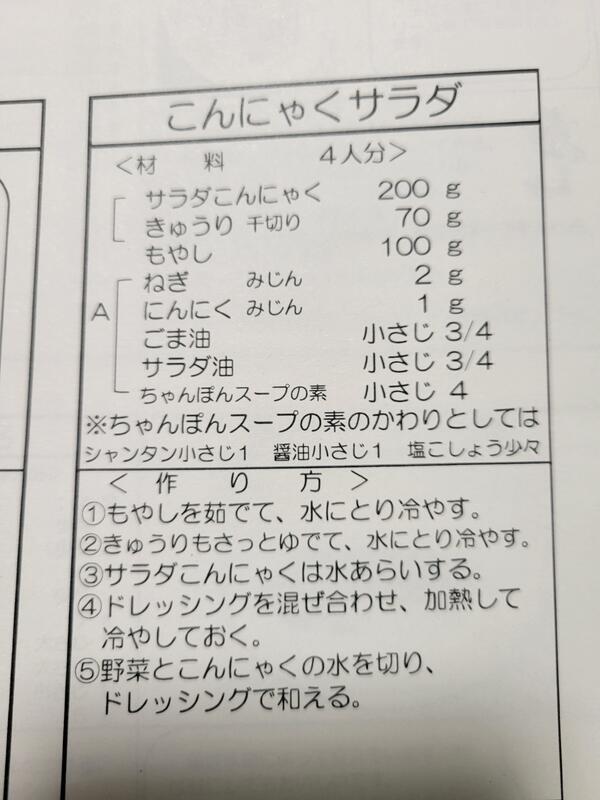 こんにゃくサラダ
＜材　料　　　４人分＞
サラダこんにゃく　200 g
きゅうり 千切り　70 g
もやし　100 g
ねぎ　みじん　2 g
A にんにく　みじん　1 g
ごま油　小さじ 3/4
サラダ油　小さじ 3/4
ちゃんぽんスープの素　小さじ 4
※ちゃんぽんスープの素のかわりとしては
シャンタン小さじ1　醤油小さじ1　塩こしょう少々
＜　作　り　方　＞
①もやしを茹でて、水にとり冷やす。
②きゅうりもさっとゆでて、水にとり冷やす。
③サラダこんにゃくは水あらいする。
④ドレッシングを混ぜ合わせ、加熱して
冷やしておく。
⑤野菜とこんにゃくの水を切り、
ドレッシングで和える。